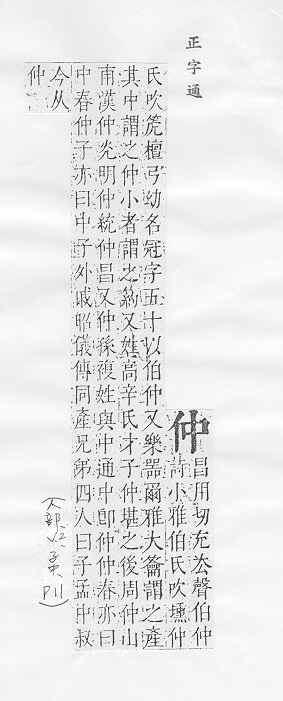 正字通
仲
昌用切充去聲伯仲
詩小雅伯氏吹壎仲
氏吹箎檀弓幼名冠字五十以伯仲又樂器爾雅大籥謂之產
其中謂之仲小者謂之箹又姓高辛氏才子仲堪之後周仲山
甫漢仲光明仲統仲昌又仲孫複姓與中通中卽仲仲春亦曰
中春仲子亦曰中子外戚昭儀傳同產兄弟四人曰子孟中叔
今从
仲
(人部 子集 P11)